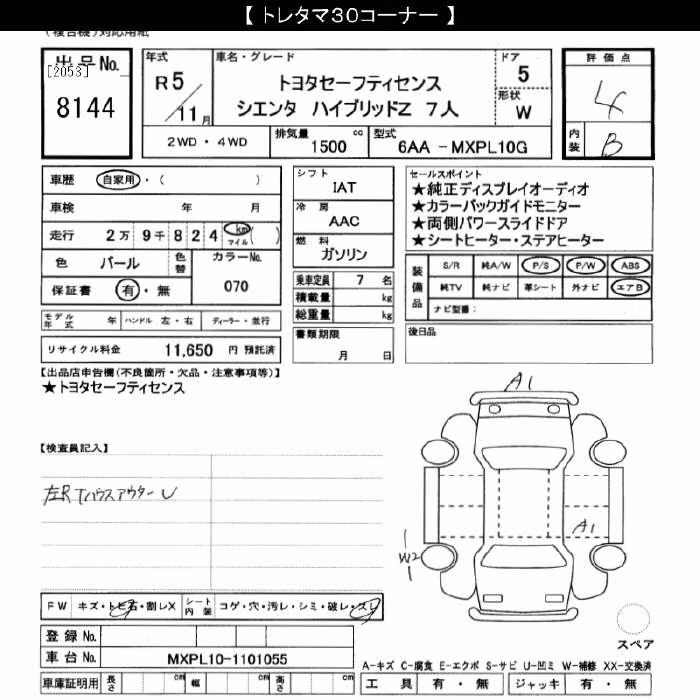 【 トレタマ30コーナー 】
(複合機)対応用紙
出品No.
[2053]
8144
年式
R5/11月
車名・グレード
トヨタセーフティセンス
シエンタ ハイブリッドZ 7人
ドア
5
形状
W
評価点
4
内装
B
2WD・4WD
排気量 1500 cc
型式 6AA -MXPL10G
車歴 自家用・( )
車検 年 月
走行 2万 9千 8 2 4 km マイル ( )
色 パール 色替 カラーNo.
保証書 有・無 070
モデル年式 年 ハンドル 左・右 ディーラー・並行
リサイクル料金 11,650 円 預託済
シフト
IAT
冷房
AAC
燃料
ガソリン
乗車定員 7 名
積載量 kg
総重量 kg
書類期限
月 日
セールスポイント
★純正ディスプレイオーディオ
★カラーバックガイドモニター
★両側パワースライドドア
★シートヒーター・ステアヒーター
装備品 S/R 純A/W P/S P/W ABS
純TV 純ナビ 革シート 外ナビ エアB
ナビ型番:
後日品
【出品店申告欄(不良箇所・欠品・注意事項等)】
★トヨタセーフティセンス
【検査員記入】
左RTハウスアウターU
A1
A1
W2
FW キズ・トビ石・割レX シート内装 コゲ・穴・汚レ・シミ・破レ・スレ
登録No.
車台No. MXPL10-1101055
車庫証明用 長さ cm 幅 cm 高さ cm
スペア
A-キズ C-腐食 E-エクボ S-サビ U-凹ミ W-補修 XX-交換済
工具 有・無 ジャッキ 有・無